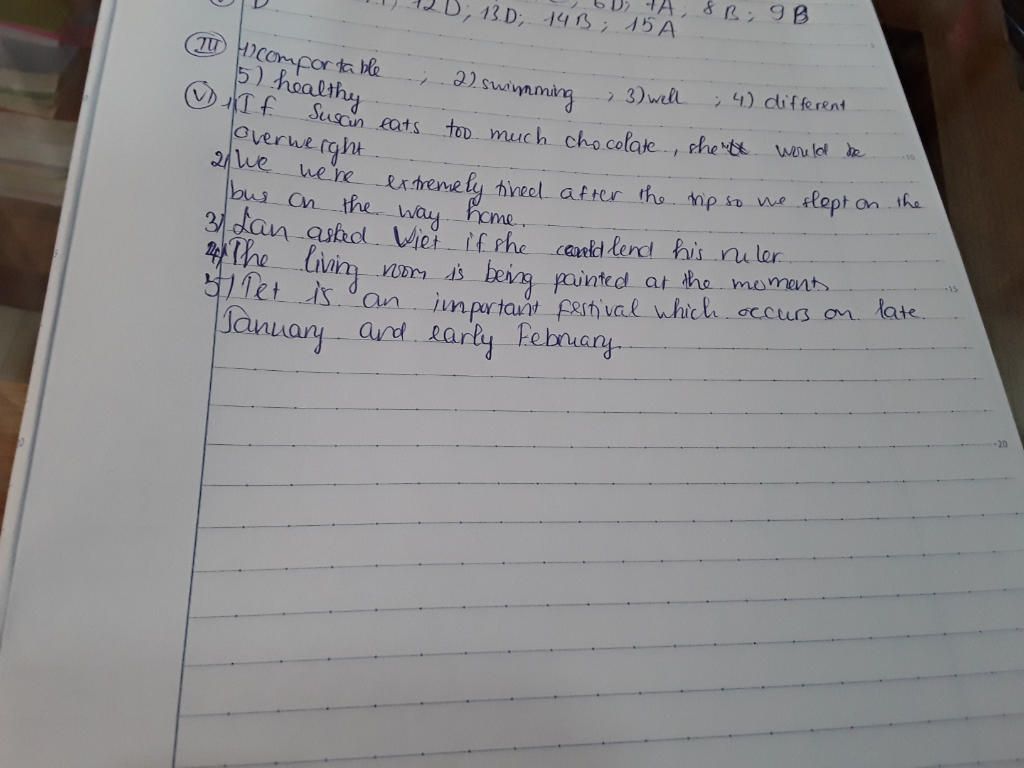 6D; 7A; 8B; 9B
12D; 13D; 14B; 15A
III 1) comportable ; 2) swimming ; 3) well ; 4) different
5) healthy
V 1/ If Susan eats too much chocolate, she would be
overweight
2/ We were extremely tired after the trip so we slept on the
bus on the way home.
3/ Lan asked Viet if she could lend his ruler
4/ The living room is being painted at the moment
5/ Tet is an important festival which occurs on late
January and early February